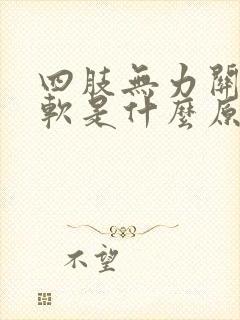 四肢無力關
軟是什麼原
不望